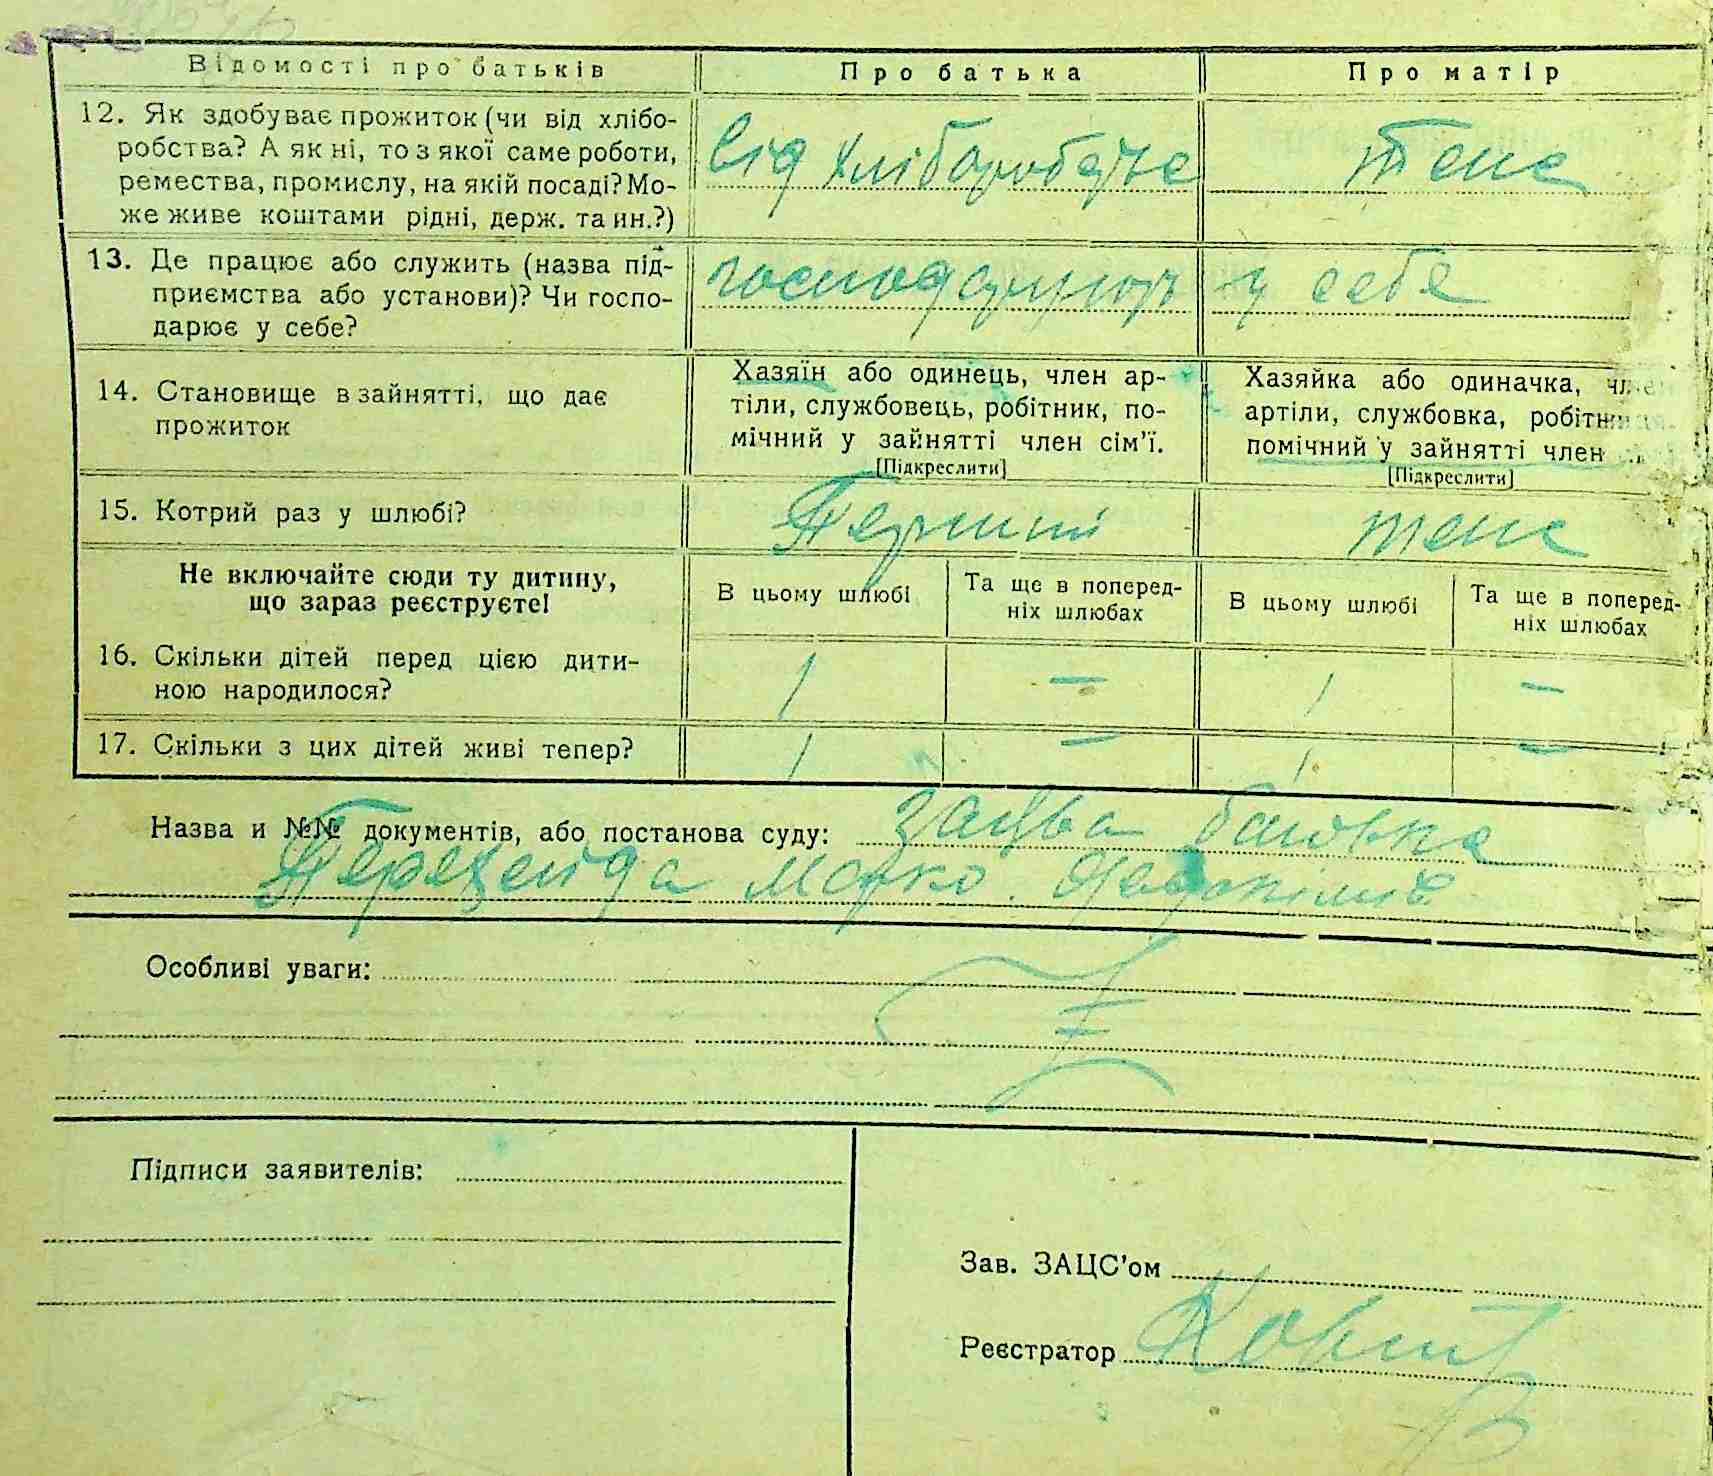 Відомості про батьків Про батька Про матір
12. Як здобуває прожиток (чи від хлібо-
робства? А як ні, то з якої саме роботи,
ремества, промислу, на якій посаді? Мо-
же живе коштами рідні, держ. та ин.?)
від хліборобства теж
13. Де працює або служить (назва під-
приємства або установи)? Чи госпо-
дарює у себе?
господарюють у себе
14. Становище в зайнятті, що дає
прожиток
Хазяїн або одинець, член ар-
тіли, службовець, робітник, по-
мічний у зайнятті член сім'ї.
[Підкреслити]
Хазяйка або одиначка, член
артіли, службовка, робітниця,
помічний у зайнятті член
[Підкреслити]
15. Котрий раз у шлюбі?
Перший теж
Не включайте сюди ту дитину,
що зараз реєструєте!
В цьому шлюбі Та ще в поперед-
ніх шлюбах
В цьому шлюбі Та ще в поперед-
ніх шлюбах
16. Скільки дітей перед цією дити-
ною народилося?
1 — 1 —
17. Скільки з цих дітей живі тепер?
1 — 1 —
Назва и №№ документів, або постанова суду: заява батька
Марко
Особливі уваги:
Підписи заявителів:
Зав. ЗАЦС'ом
Реєстратор